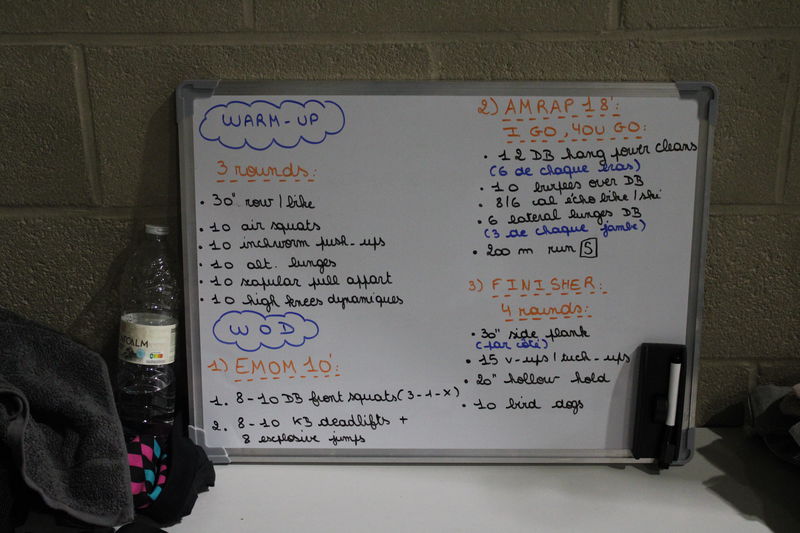 WARM-UP
3 rounds:
• 30" row/bike
• 10 air squats
• 10 inchworm push-ups
• 10 alt. lunges
• 10 scapular pull appart
• 10 high knees dynamiques
WOD
1) EMOM 10':
1. 8-10 DB front squats (3-1-X)
2. 8-10 KB deadlifts +
8 explosive jumps
2) AMRAP 18':
I GO, YOU GO:
• 12 DB hang power cleans
(6 de chaque bras)
• 10 burpees over DB
• 8/6 cal echo bike/ski
• 6 lateral lunges DB
(3 de chaque jambe)
• 200 m run S
3) FINISHER:
4 rounds:
• 30" side plank
(par côté)
• 15 v-ups/tuck-ups
• 20" hollow hold
• 10 bird dogs